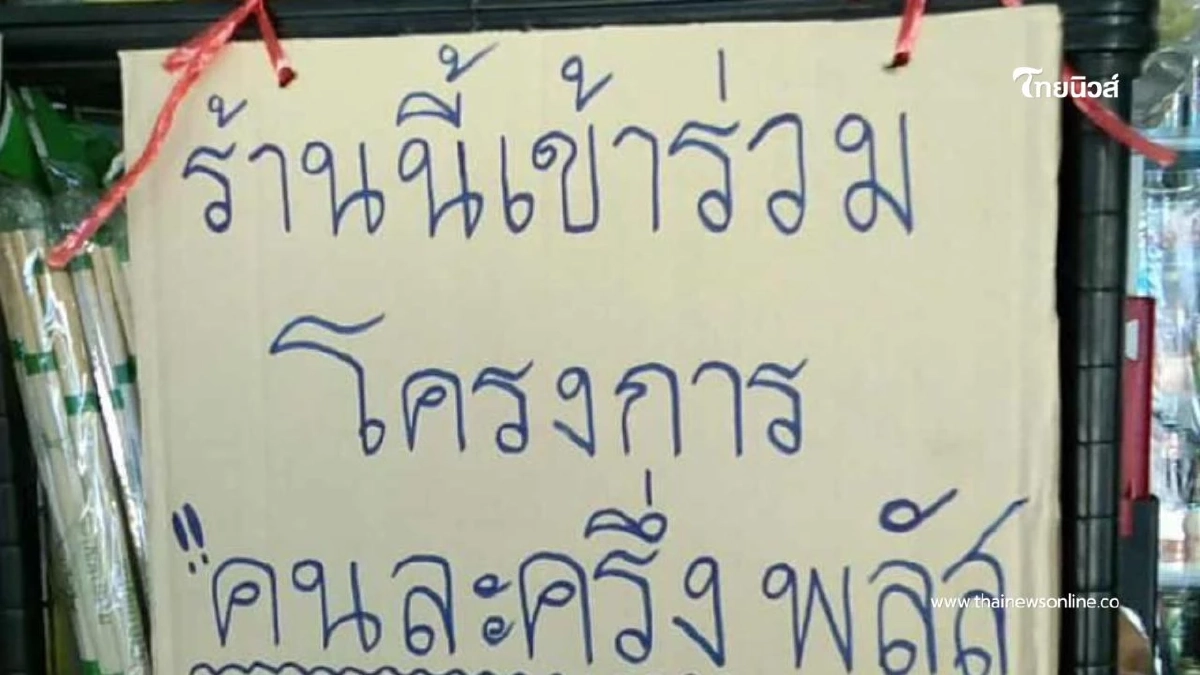 ไทยนิวส์
ร้านนี้เข้าร่วม
โครงการ
"คนละครึ่ง พลัส
www.thainewsonline.co